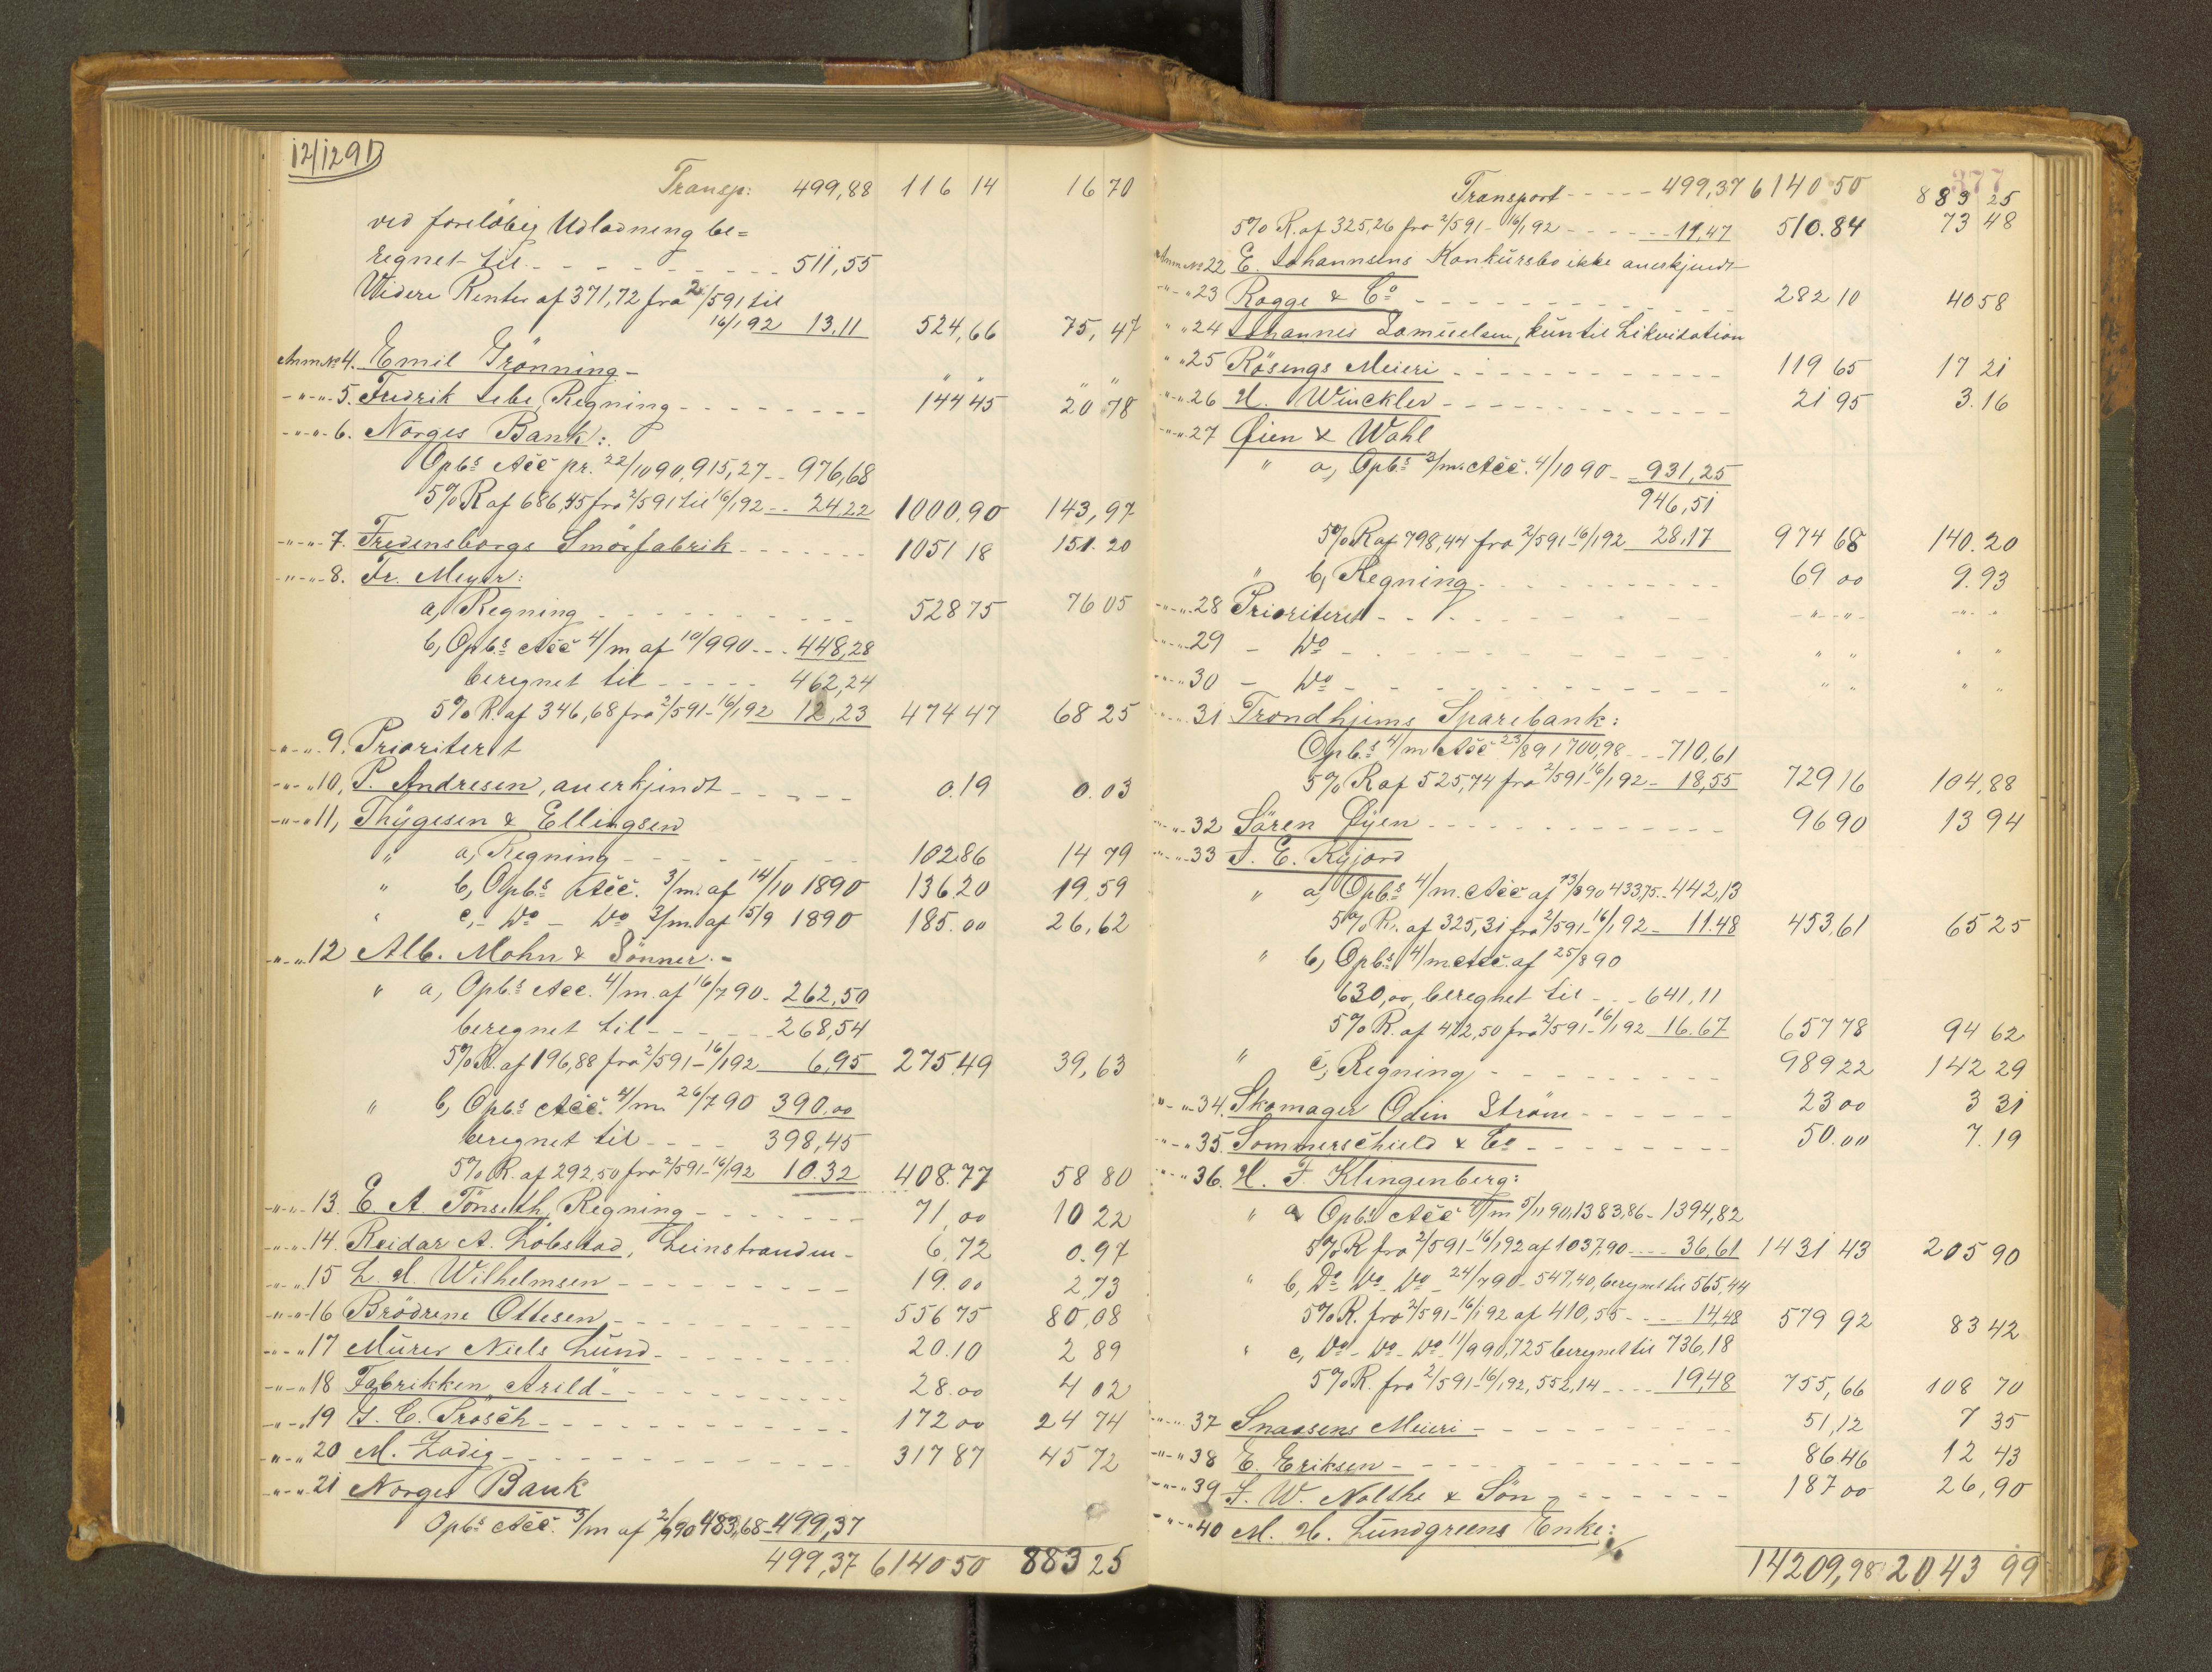 12/1291
Transp: 499,88 116 14 16 70
ved foreløbig Udlodning be=
regnet til 511,55
Videre Renter af 371,72 fra 2/5 91 til
16/1 92 13.11 524,66 75,47
Anm No 4. Emil Grönning - " " " "
-"-"- 5. Fredrik Lebe, Regning 144 45 20 78
-"-"- 6. Norges Bank:
Opbs Acc pr. 22/10 90, 915,27 - 976,68
5% R af 686,45 fra 2/5 91 til 16/1 92 - 24,22 1000,90 143,97
-"-"- 7. Fredensborgs Smörfabrik 1051 18 151.20
-"-"- 8. Fr. Meyer:
a, Regning 528 75 76 05
b, Opbs Acc 4/m af 10/9 90 - 448,28
beregnet til 462,24
5% R. af 346,68 fra 2/5 91 - 16/1 92 12,23 474 47 68 25
-"-"- 9. Prioriteret
-"-"- 10, P. Andresen, anerkjendt 0.19 0.03
-"-"- 11, Thygesen & Ellingsen
" a, Regning 102.86 14 79
" b, Opbs Acc. 3/m. af 14/10 1890 136.20 19,59
" c, - Do - Do 3/m. af 15/9 1890 185.00 26,62
-"-"- 12 Alb. Mohn & Sönner. -
" a, Opbs Acc. 4/m. af 16/7 90 - 262,50
beregnet til 268,54
5% R. af 196,88 fra 2/5 91 - 16/1 92 6,95 275.49 39,63
" b, Opbs Acc. 4/m. 26/7 90 390.00
beregnet til 398,45
5% R. af 292,50 fra 2/5 91 - 16/1 92 10.32 408.77 58 80
-"-"- 13. E A. Tönseth, Regning 71,00 10 22
-"-"- 14. Reidar A. Löbstad, Leinstranden - 6,72 0.97
-"-"- 15 L. A. Wilhelmsen 19.00 2,73
-"-"- 16 Brödrene Ottesen 556 75 80,08
-"-"- 17 Murer Niels Lund 20.10 2 89
-"-"- 18 Fabrikken "Arild" 28.00 4 02
-"-"- 19 J. C. Prösch 172 00 24 74
-"-"- 20 M. Zadig 317 87 45 72
-"-"- 21 Norges Bank
Opbs Acc. 3/m af 2/9 90 483,68 - 499,37
499,37 6140 50 883 25
377
Transport 499,37 6140 50 883 25
5% R. af 325,26 fra 2/5 91 - 16/1 92 11,47 510.84 73 48
Anm No 22 E. Johannsens Konkursbo ikke anerkjendt
-"-"- 23 Rogge & Co 282 10 40 58
" " 24 Johannes Samuelsen, kun til Likvidation
" " 25 Rösengs Meieri 119 65 17 21
-"-"- 26 H. Winckler 21 95 3.16
-"-"- 27 Øien & Wahl
" a, Opbs 3/m. Acc. 4/10 90 - 931,25
946,51
5% R af 798,44 fra 2/5 91 - 16/1 92 28.17 974 68 140.20
" b, Regning 69 00 9.93
-"-"- 28 Prioriteret - " - " - - " - "
-"-"- 29 - Do " " " "
-"-"- 30 - Do " " " "
-"-"- 31 Trondhjems Sparebank:
Opbs 4/m Acc 23/8 91 700,98 - 710,61
5% R af 525,74 fra 2/5 91 - 16/1 92 - 18,55 729 16 104,88
-"-"- 32 Sören Øyen 96 90 13 94
-"-"- 33 J. E. Ryjord
" a, Opbs 4/m. Acc af 13/8 90 433,75 - 442,13
5% R. af 325,31 fra 2/5 91 - 16/1 92 - 11.48 453,61 65 25
" b, Opbs 4/m Acc. af 25/8 90
630,00, beregnet til 641,11
5% R. af 472,50 fra 2/5 91 - 16/1 92 16.67 657 78 94 62
" c, Regning 989 22 142 29
-"-"- 34. Skomager Odin Ström 23 00 3 31
-"-"- 35. Sommerschield & Co 50.00 7.19
-"-"- 36. H. F. Klingenberg:
" a Opbs Acc 4/m 5/11 90, 1383,86 - 1394,82
5% R fra 2/5 91 - 16/1 92 af 1037,90 36,61 1431 43 205 90
" b, Do Do Do 24/7 90 - 547,40, beregnet til 565,44
5% R. fra 2/5 91 - 16/1 92 af 410,55 14,48 579 92 83 42
" c, Do - Do - Do 11/9 90, 725 beregnet til 736,18
5% R. fra 2/5 91 - 16/1 92, 552,14 19,48 755,66 108 70
-"-"- 37 Snaasens Meieri 51,12 7 35
-"-"- 38 E. Eriksen 86.46 12 43
-"-"- 39 F. W. Nolthe & Sön 187 00 26,90
-"-"- 40 M. H. Lundgreens Enke:
14209,98 2043 99